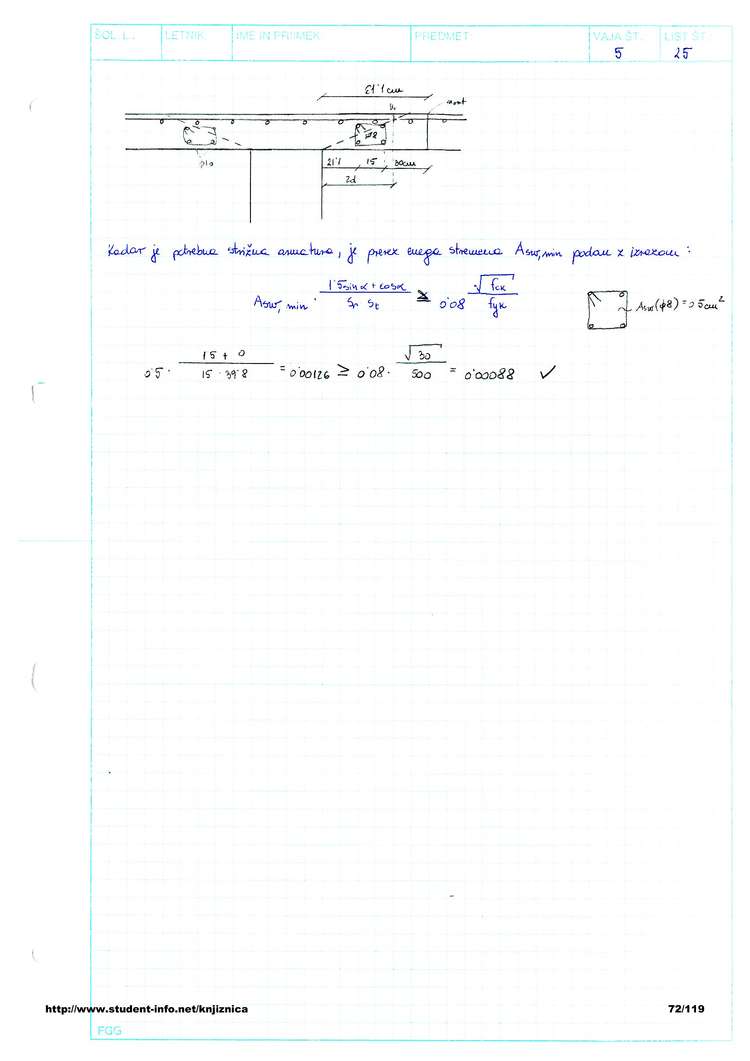 ŠOL. L.: LETNIK IME IN PRIIMEK PREDMET VAJA ŠT. LIST ŠT.
5 25
61'1 cm
φ8
φ10
21'1 15 30cm
2d
Kadar je potrebna strižna armatura, je prerez enega stremena Asw,min podan z izrazom :
Asw, min · (1'5 sin α + cos α) / (Sr · St) ≥ 0'08 √fck / fyk
Asw(φ8) = 0'5cm²
0'5 · (1'5 + 0) / (15 · 39'8) = 0'00126 ≥ 0'08 · √30 / 500 = 0'00088 ✓
http://www.student-info.net/knjiznica 72/119
FGG